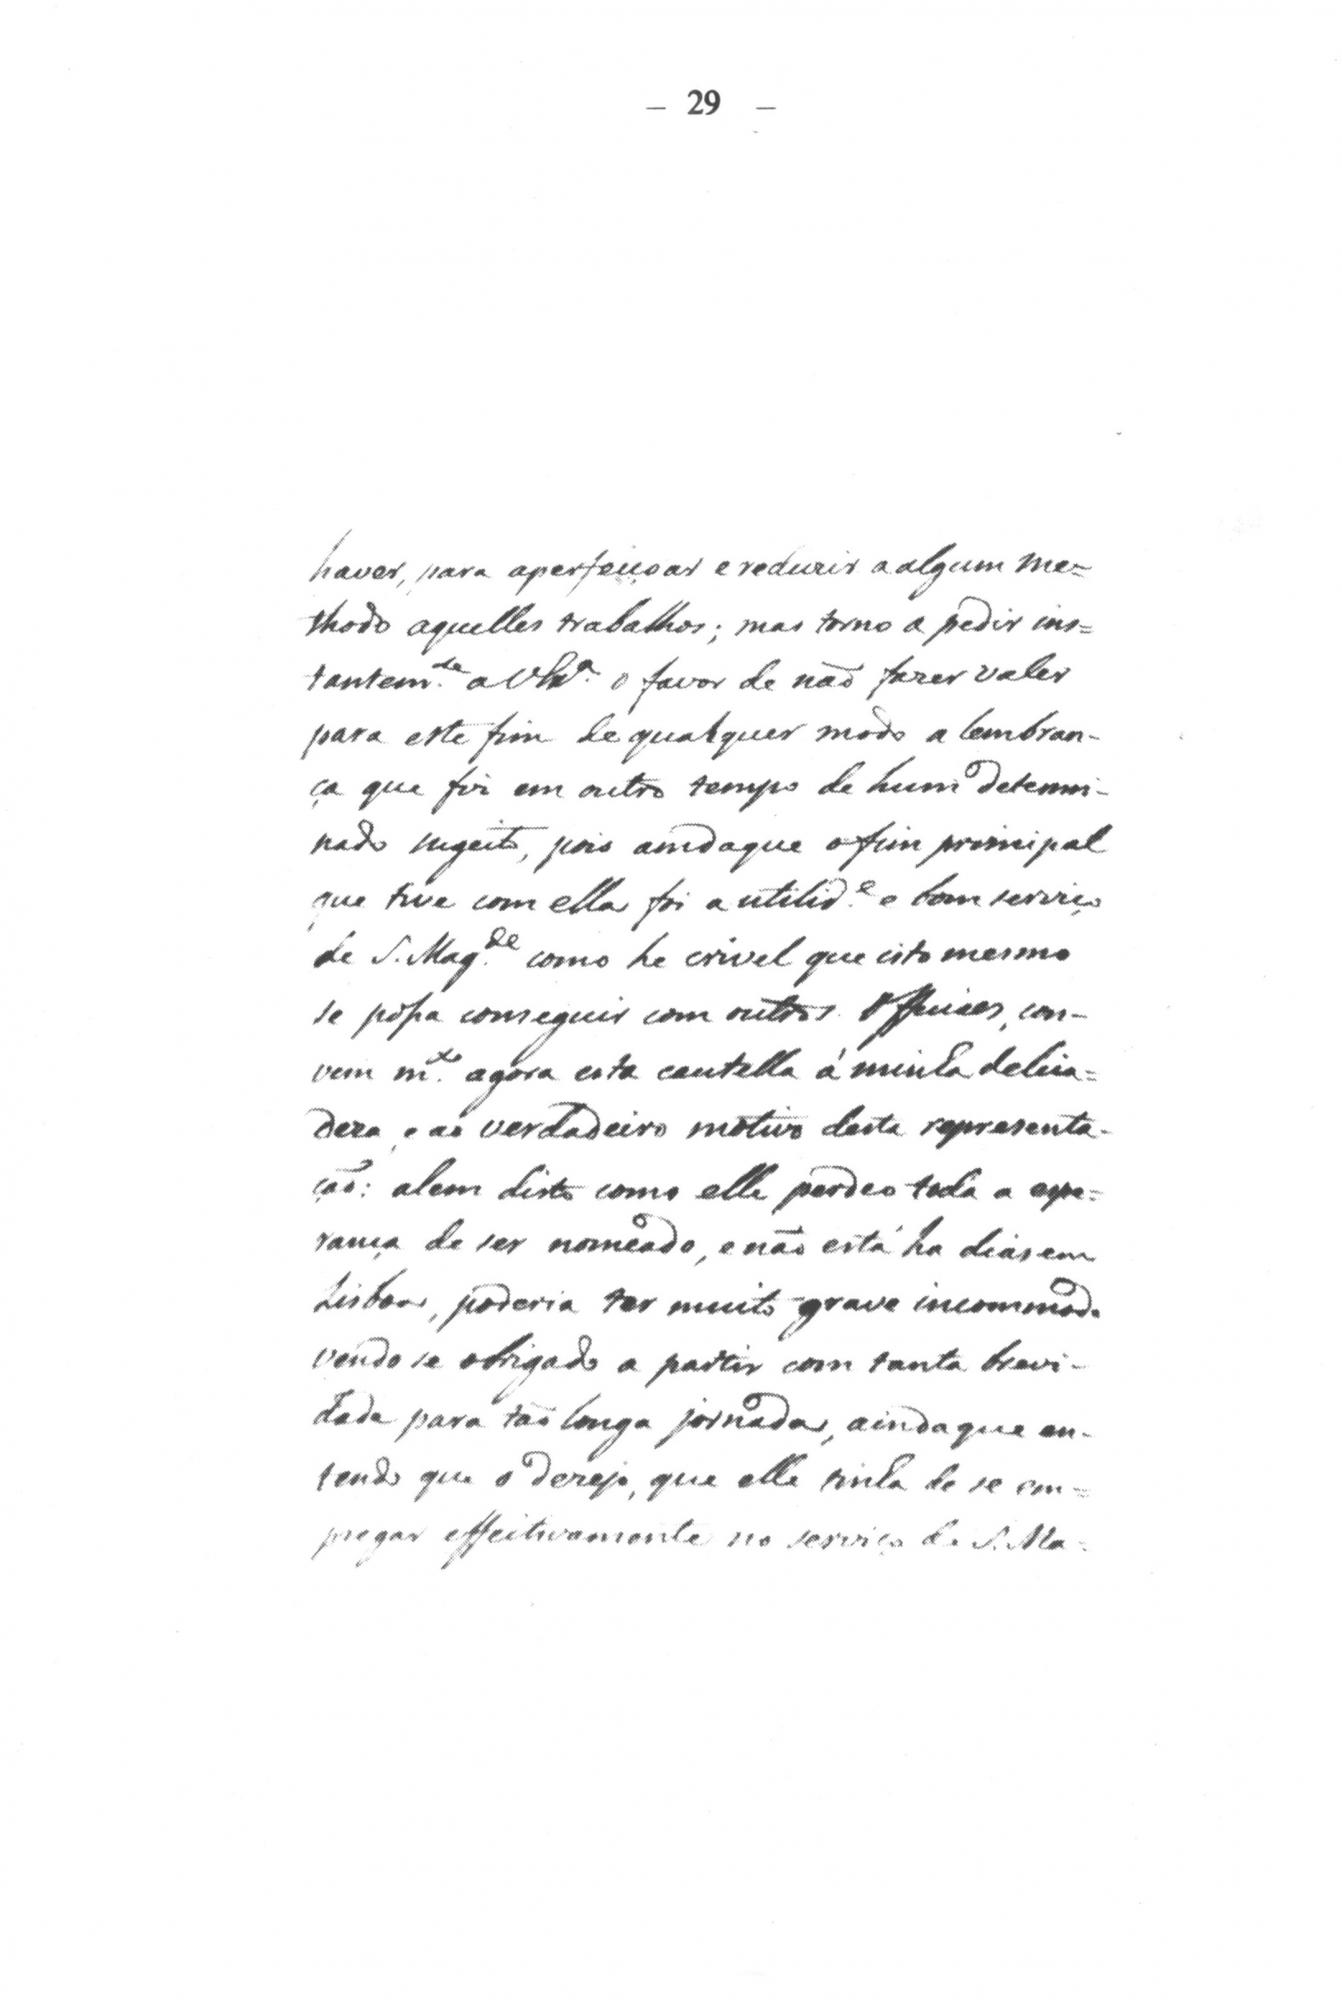 – 29 –
haver, para aperfeiçoar e reduzir a algum me=
thodo aquelles trabalhos; mas torno a pedir ins=
tantem.te a o favor de não fazer valer
para este fim de qualquer modo a lembran-
ça que fiz em outro tempo de hum determi-
nado sugeito, pois aindaque o fim principal
que tive com ella foi a utilid.e e bom serviço
de S. Mag.de como he crivel que isto mesmo
se possa conseguir com outros Officiaes, con-
vem m.to agora esta cautella á minha delica=
deza, e ao verdadeiro motivo desta representa-
ção: alem disto como elle perdeo toda a espe=
rança de ser nomeado, e não está ha dias em
Lisboa, poderia ter muito grave incommodo
vendo se obrigado a partir com tanta brevi-
dade para tão longa jornada, aindaque en-
tendo que o dezejo, que elle tinha de se em=
pregar effeitivamente no serviço de S. Ma=